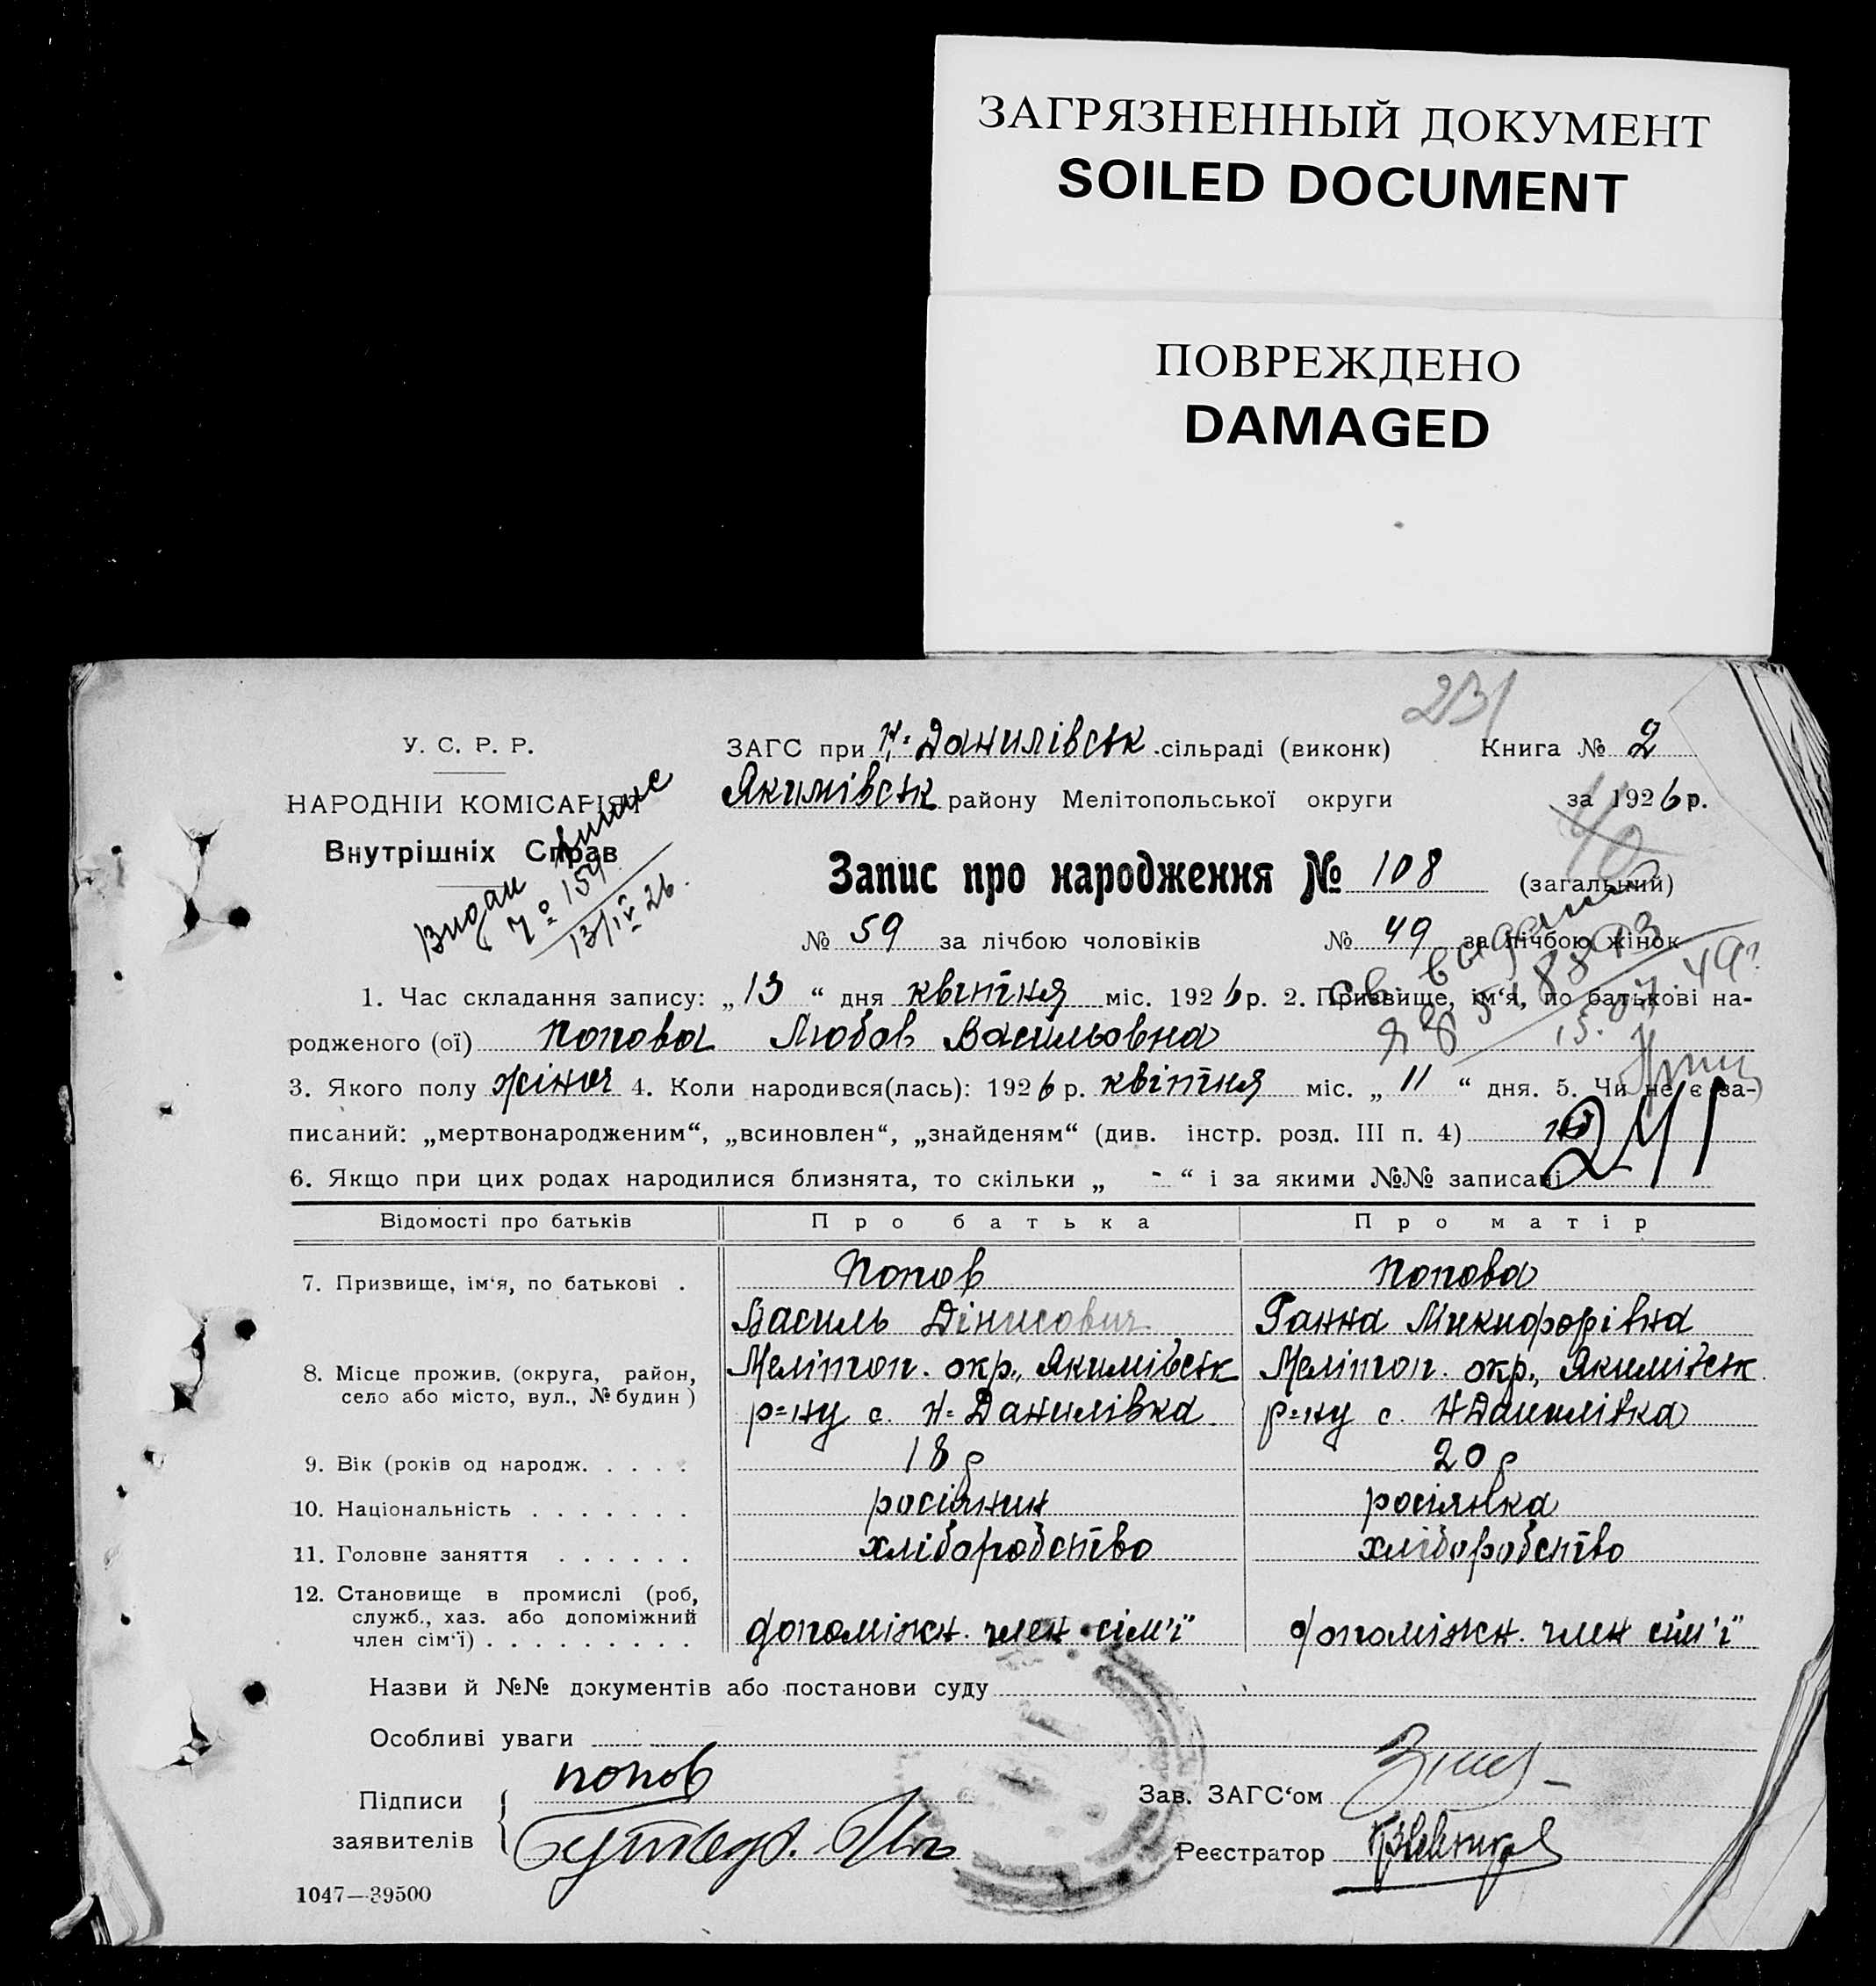 ЗАГРЯЗНЕННЫЙ ДОКУМЕНТ
SOILED DOCUMENT
ПОВРЕЖДЕНО
DAMAGED
231
У. С. Р. Р.
ЗАГС при Н-Данилівськ сільраді (виконк) Книга № 2
НАРОДНІЙ КОМІСАРІЯТ
Якимівськ району Мелітопольської округи за 1926 р.
40
Внутрішніх Справ
Видан
№ 159
13/IV 26.
Запис про народження № 108 (загальний)
№ 59 за лічбою чоловіків № 49 за лічбою жінок
1. Час складання запису: „13“ дня квітня міс. 1926 р. 2. Призвище, ім‘я, по батькові на-
родженого (ої) Попова Любов Васильовна
3. Якого полу жіноч 4. Коли народився(лась): 1926 р. квітня міс. „11“ дня. 5. Чи не є за-
писаний: „мертвонародженим“, „всиновлен“, „знайденям“ (див. інстр. розд. III п. 4) ні
241
6. Якщо при цих родах народилися близнята, то скільки „ - “ і за якими №№ записані
Відомості про батьків Про батька Про матір
7. Призвище, ім‘я, по батькові . Попов Попова
Василь Дінисович Ганна Микифорівна
8. Місце прожив. (округа, район, Меліпоп. окр., Якимівськ Меліпоп. окр., Якимівськ
село або місто, вул., № будин ) р-ну с. Н-Данилівка р-ну с. Н Данилівка
9. Вік (років од народж. . . . . 18 р 20 р
10. Національність . . . . . . . росіянин росіянка
11. Головне заняття . . . . . . хліборобство хліборобство
12. Становище в промислі (роб,
служб., хаз. або допоміжний
член сім‘ї) . . . . . . . . . допоміжн. член сім'ї допоміжн. член сім'ї
Назви й №№ документів або постанови суду
Особливі уваги
Підписи
заявителів
Попов
Зав. ЗАГС‘ом
Реєстратор
1047—39500